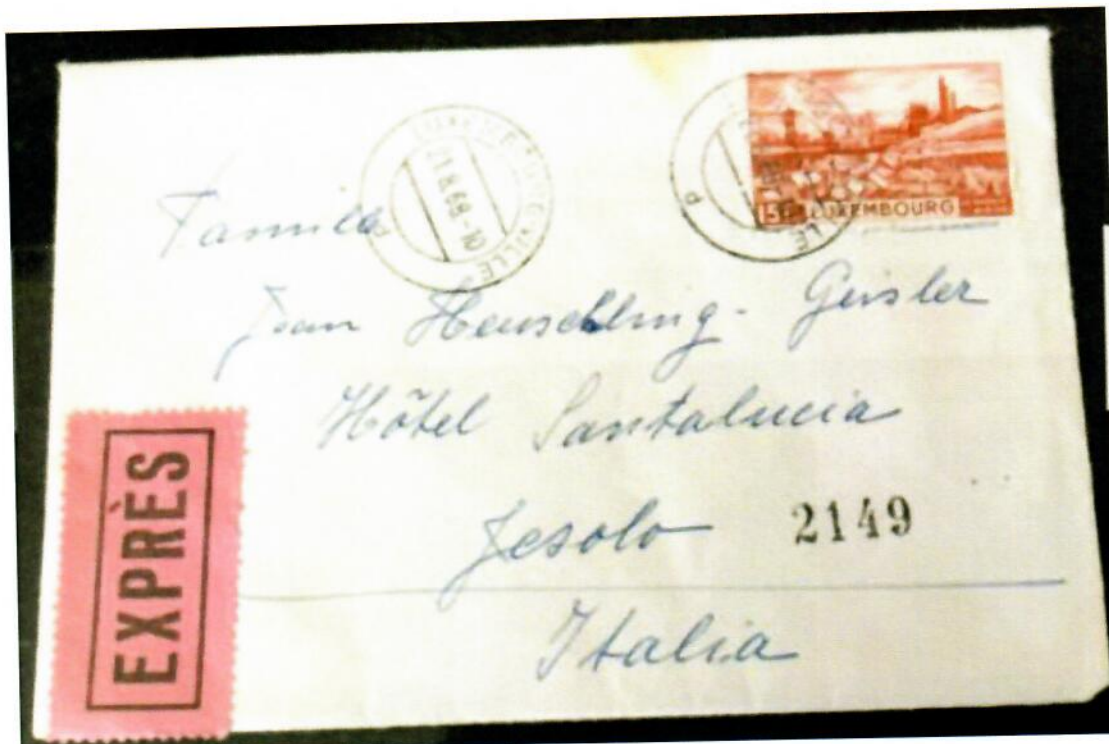 21.8.68-10
VILLE
P
VILLE
P
LUXEMBOURG
Famille
Jean Heuschling-Geisler
Hôtel Santalucia
Jesolo 2149
Italia
EXPRÈS